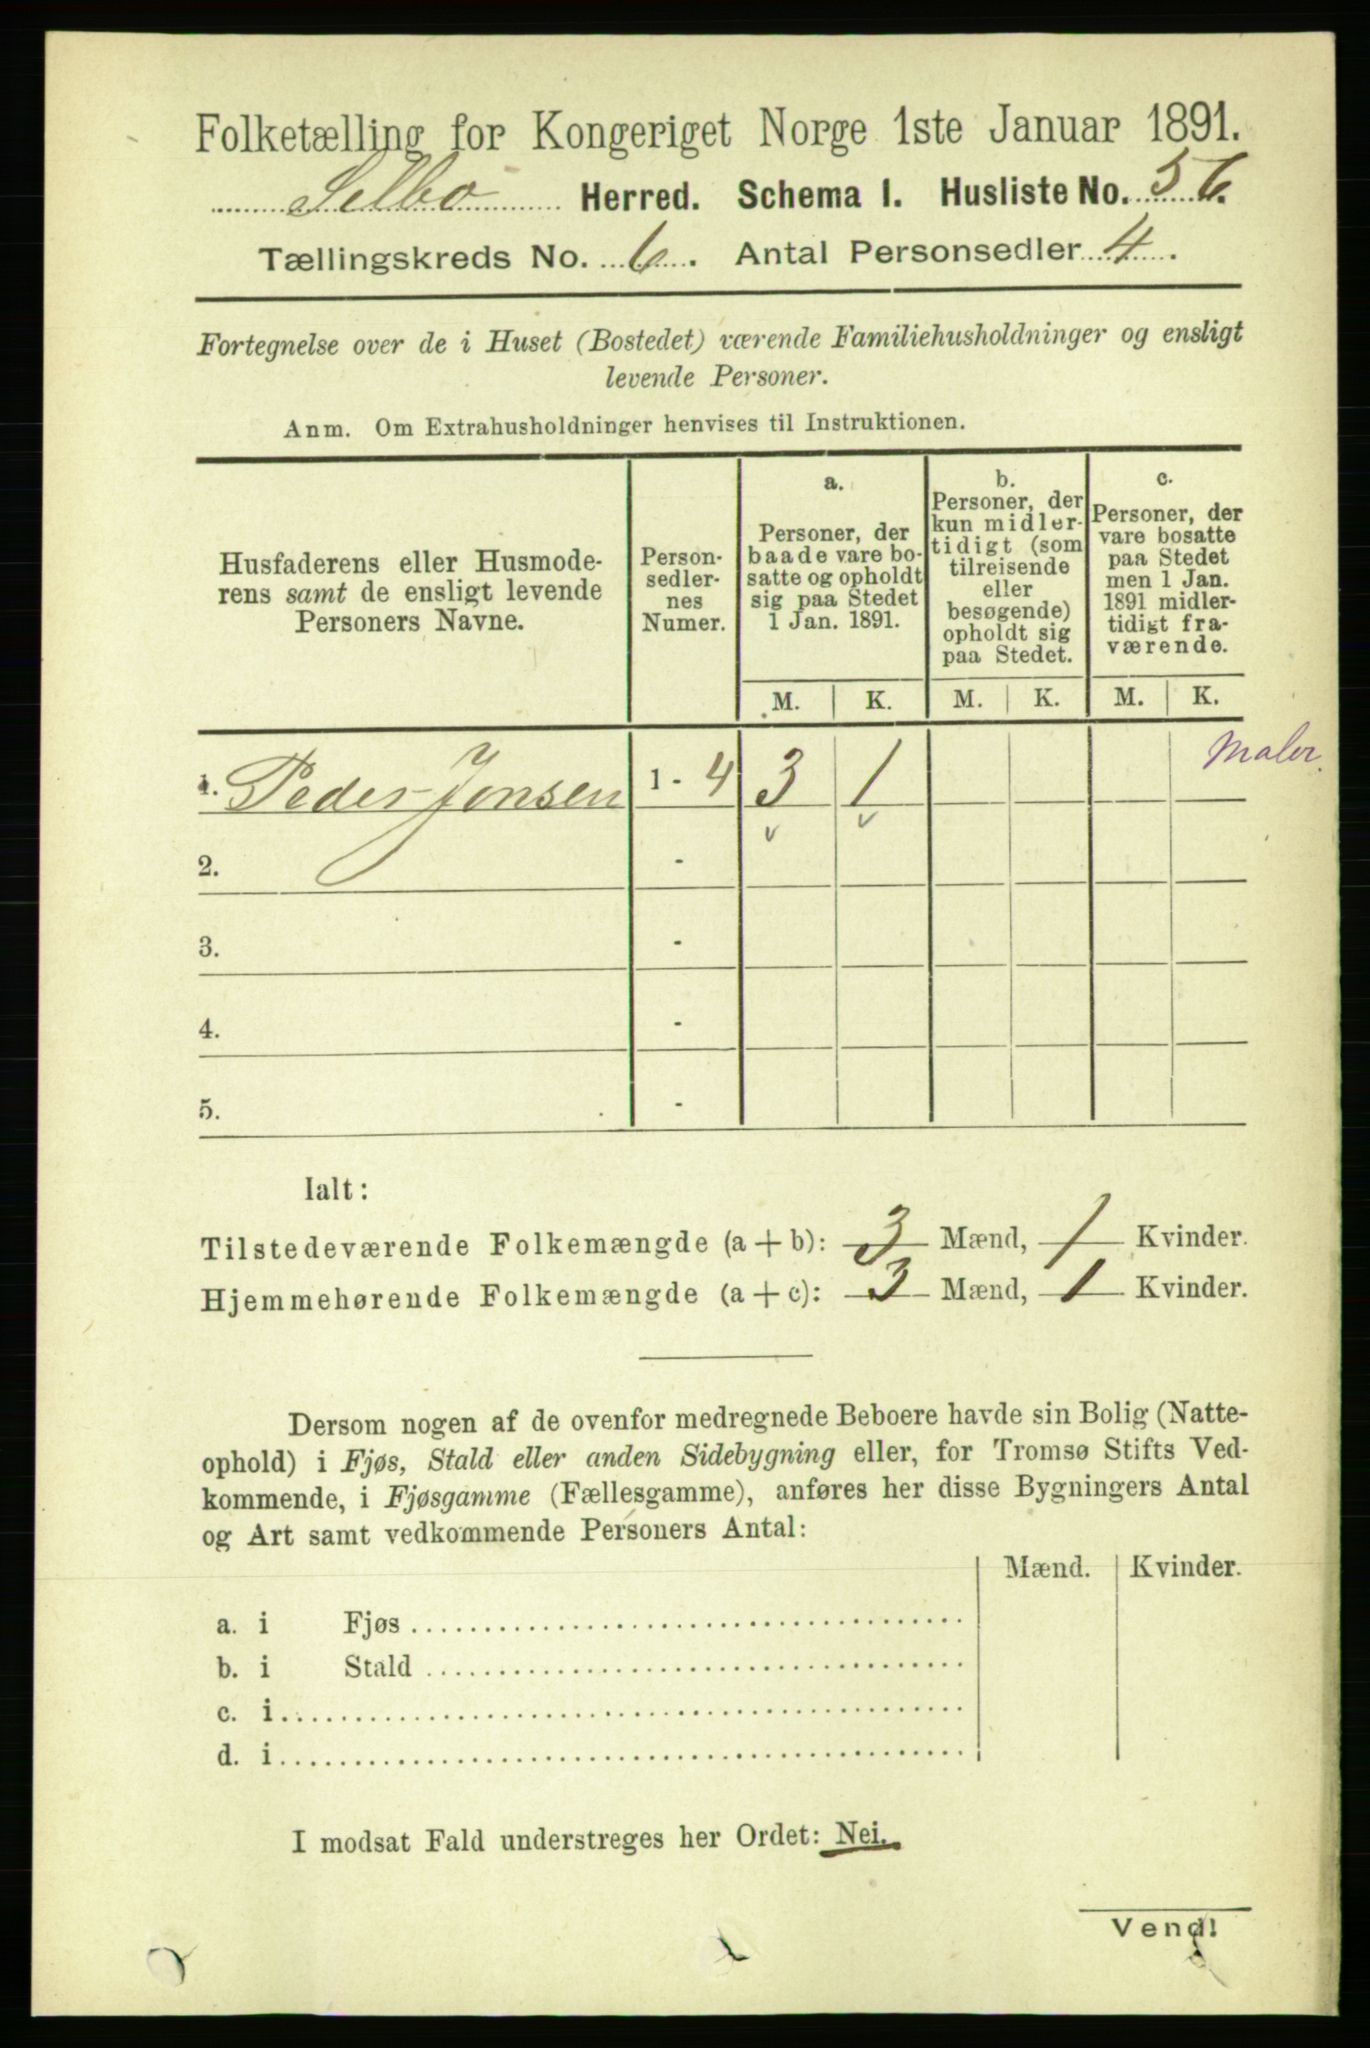 Folketælling for Kongeriget Norge 1ste Januar 1891.
Selbo Herred. Schema I. Husliste No. 56.
Tællingskreds No. 6. Antal Personsedler 4.
Fortegnelse over de i Huset (Bostedet) værende Familiehusholdninger og ensligt
levende Personer.
Anm. Om Extrahusholdninger henvises til Instruktionen.
Husfaderens eller Husmode-
rens samt de ensligt levende
Personers Navne.
Person-
sedler-
nes
Numer.
a.
Personer, der
baade vare bo-
satte og opholdt
sig paa Stedet
1 Jan. 1891.
b.
Personer, der
kun midler-
tidigt (som
tilreisende
eller
besøgende)
opholdt sig
paa Stedet.
c.
Personer, der
vare bosatte
paa Stedet
men 1 Jan.
1891 midler-
tidigt fra-
værende.
M. K. M. K. M. K.
Maler.
1. Peder Jonsen 1 - 4 3 1
2. -
3. -
4. -
5. -
Ialt:
Tilstedeværende Folkemængde (a + b): 3 Mænd, 1 Kvinder.
Hjemmehørende Folkemængde (a + c): 3 Mænd, 1 Kvinder.
Dersom nogen af de ovenfor medregnede Beboere havde sin Bolig (Natte-
ophold) i Fjøs, Stald eller anden Sidebygning eller, for Tromsø Stifts Ved-
kommende, i Fjøsgamme (Fællesgamme), anføres her disse Bygningers Antal
og Art samt vedkommende Personers Antal:
Mænd. Kvinder.
a. i Fjøs
b. i Stald
c. i
d. i
I modsat Fald understreges her Ordet: Nei.
Vend!